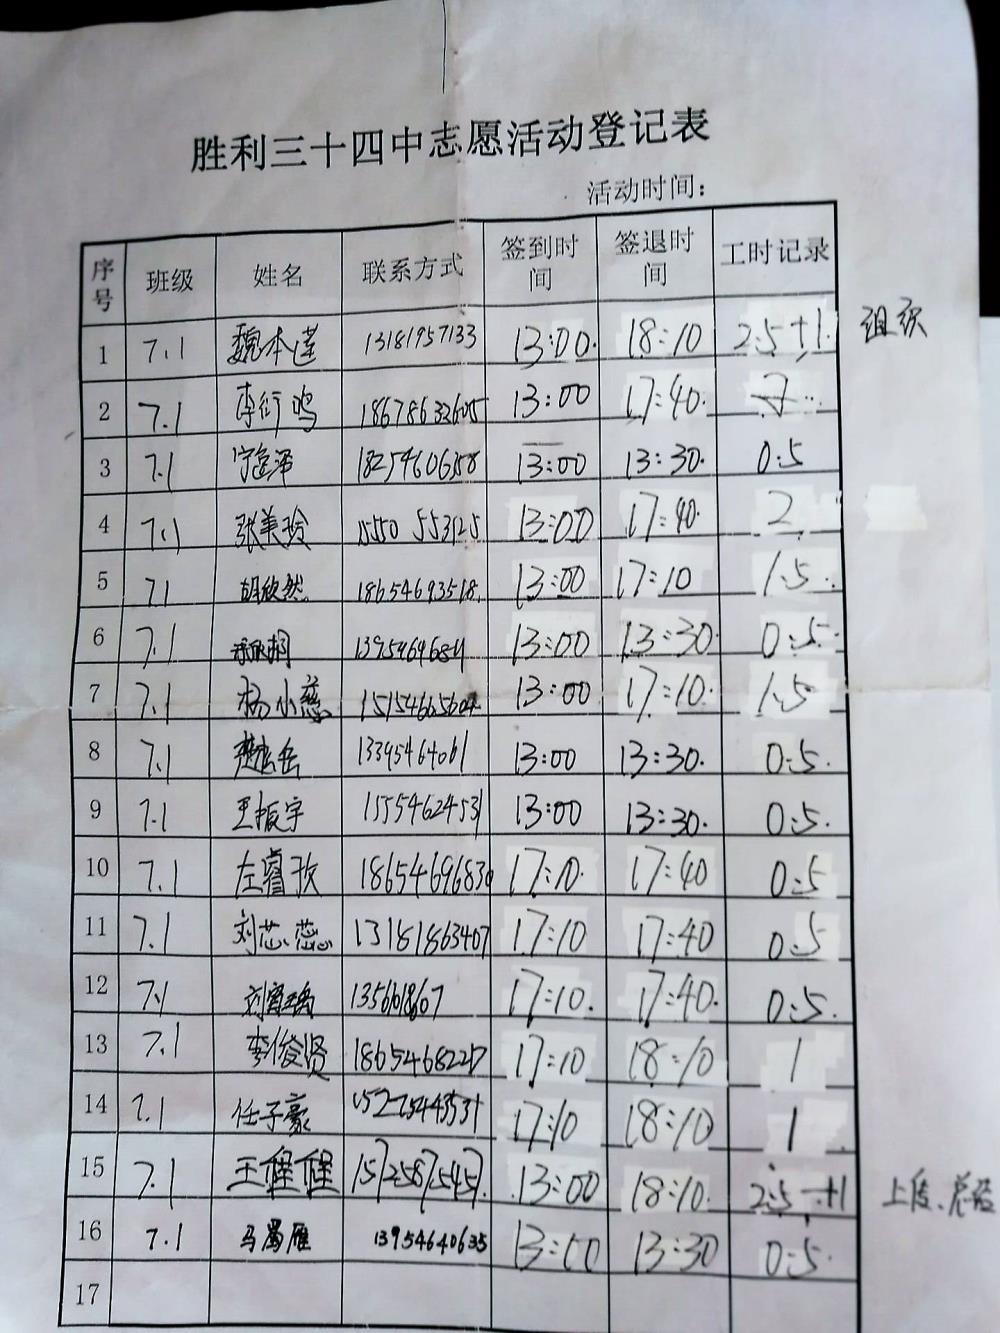 胜利三十四中志愿活动登记表
活动时间：
序号 班级 姓名 联系方式 签到时间 签退时间 工时记录
1 7.1 魏本谨 13181957133 13:00. 18:10 2.5+1. 组织
2 7.1 李衍鸣 18678632605 13:00 17:40.
3 7.1 18254606358 13:00 13:30. 0.5
4 7.1 张美玲 15550 553125 13:00 17:40. 2
5 7.1 胡欣然 18654693518. 13:00 17:10 1.5.
6 7.1 13:00 13:30. 0.5.
7 7.1 杨小慈 13:00 17:10. 1.5
8 7.1 13395464061 13:00 13:30. 0.5.
9 7.1 王振宇 15554624531 13:00 13:30. 0.5.
10 7.1 左睿孜 18654696830 17:10. 17:40 0.5
11 7.1 刘芯蕊 13181863407 17:10 17:40 0.5
12 7.1 17:10. 17:40. 0.5.
13 7.1 李俊贤 18654682217 17:10 18:10 1
14 7.1 任子豪 17:10 18:10 1
15 7.1 王偍偍 15725871545 13:00 18:10. 2.5+1 上传、总结
16 7.1 马蜀雁 13954640635 13:00 13:30 0.5.
17